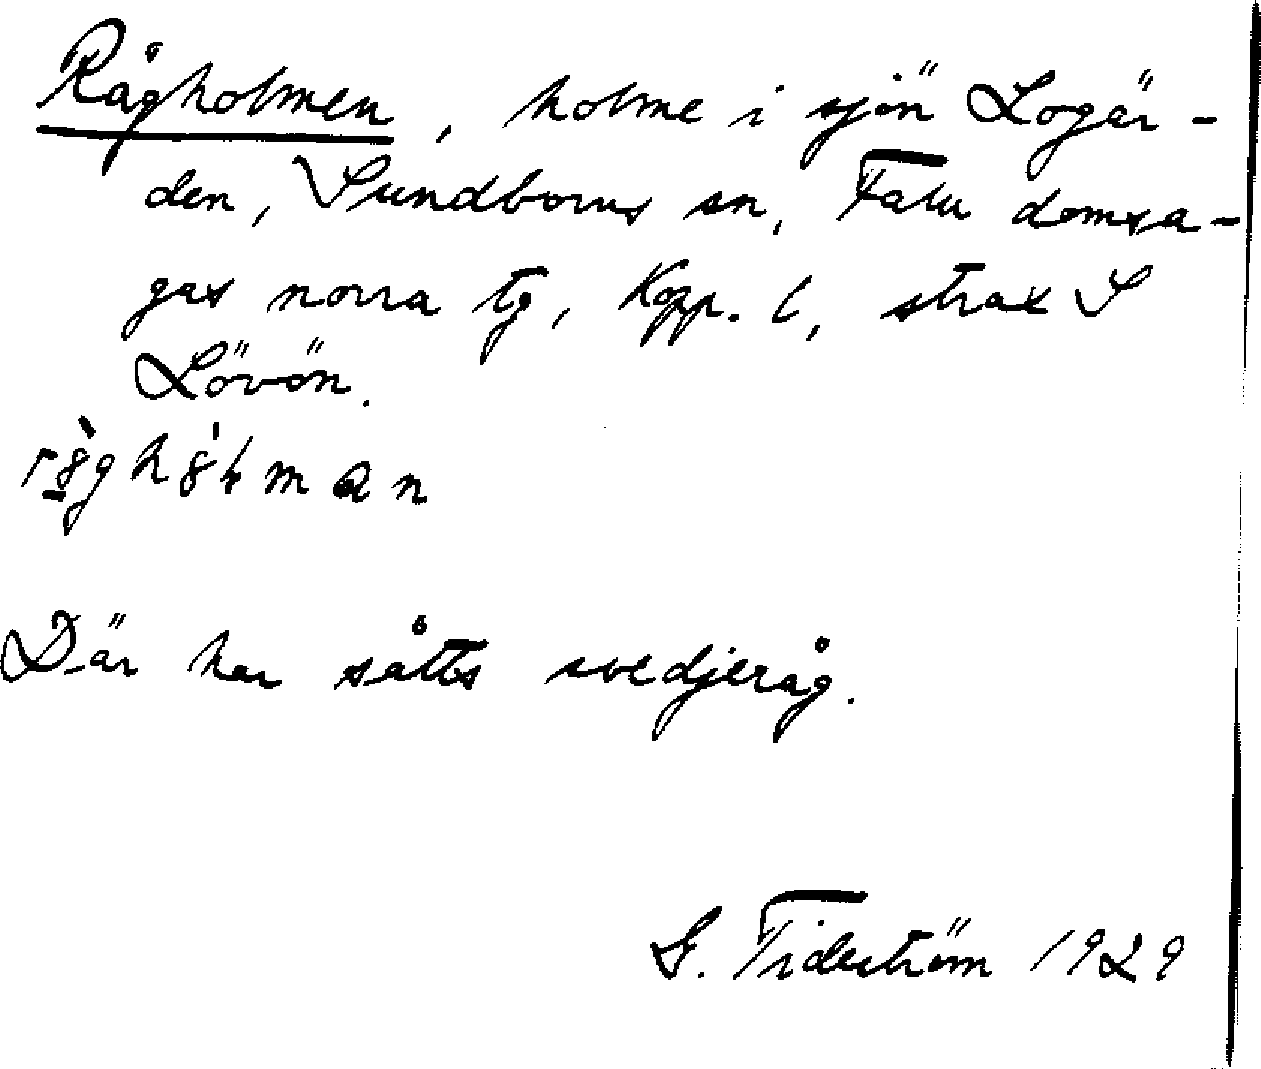 Rågholmen, holme i sjön Logär-
den, Sundborns sn, Falu domsa-
gas norra tg, Kopp. l, strax S
Lövön.
Där har såtts svedjeråg.
G. Tideström 1929